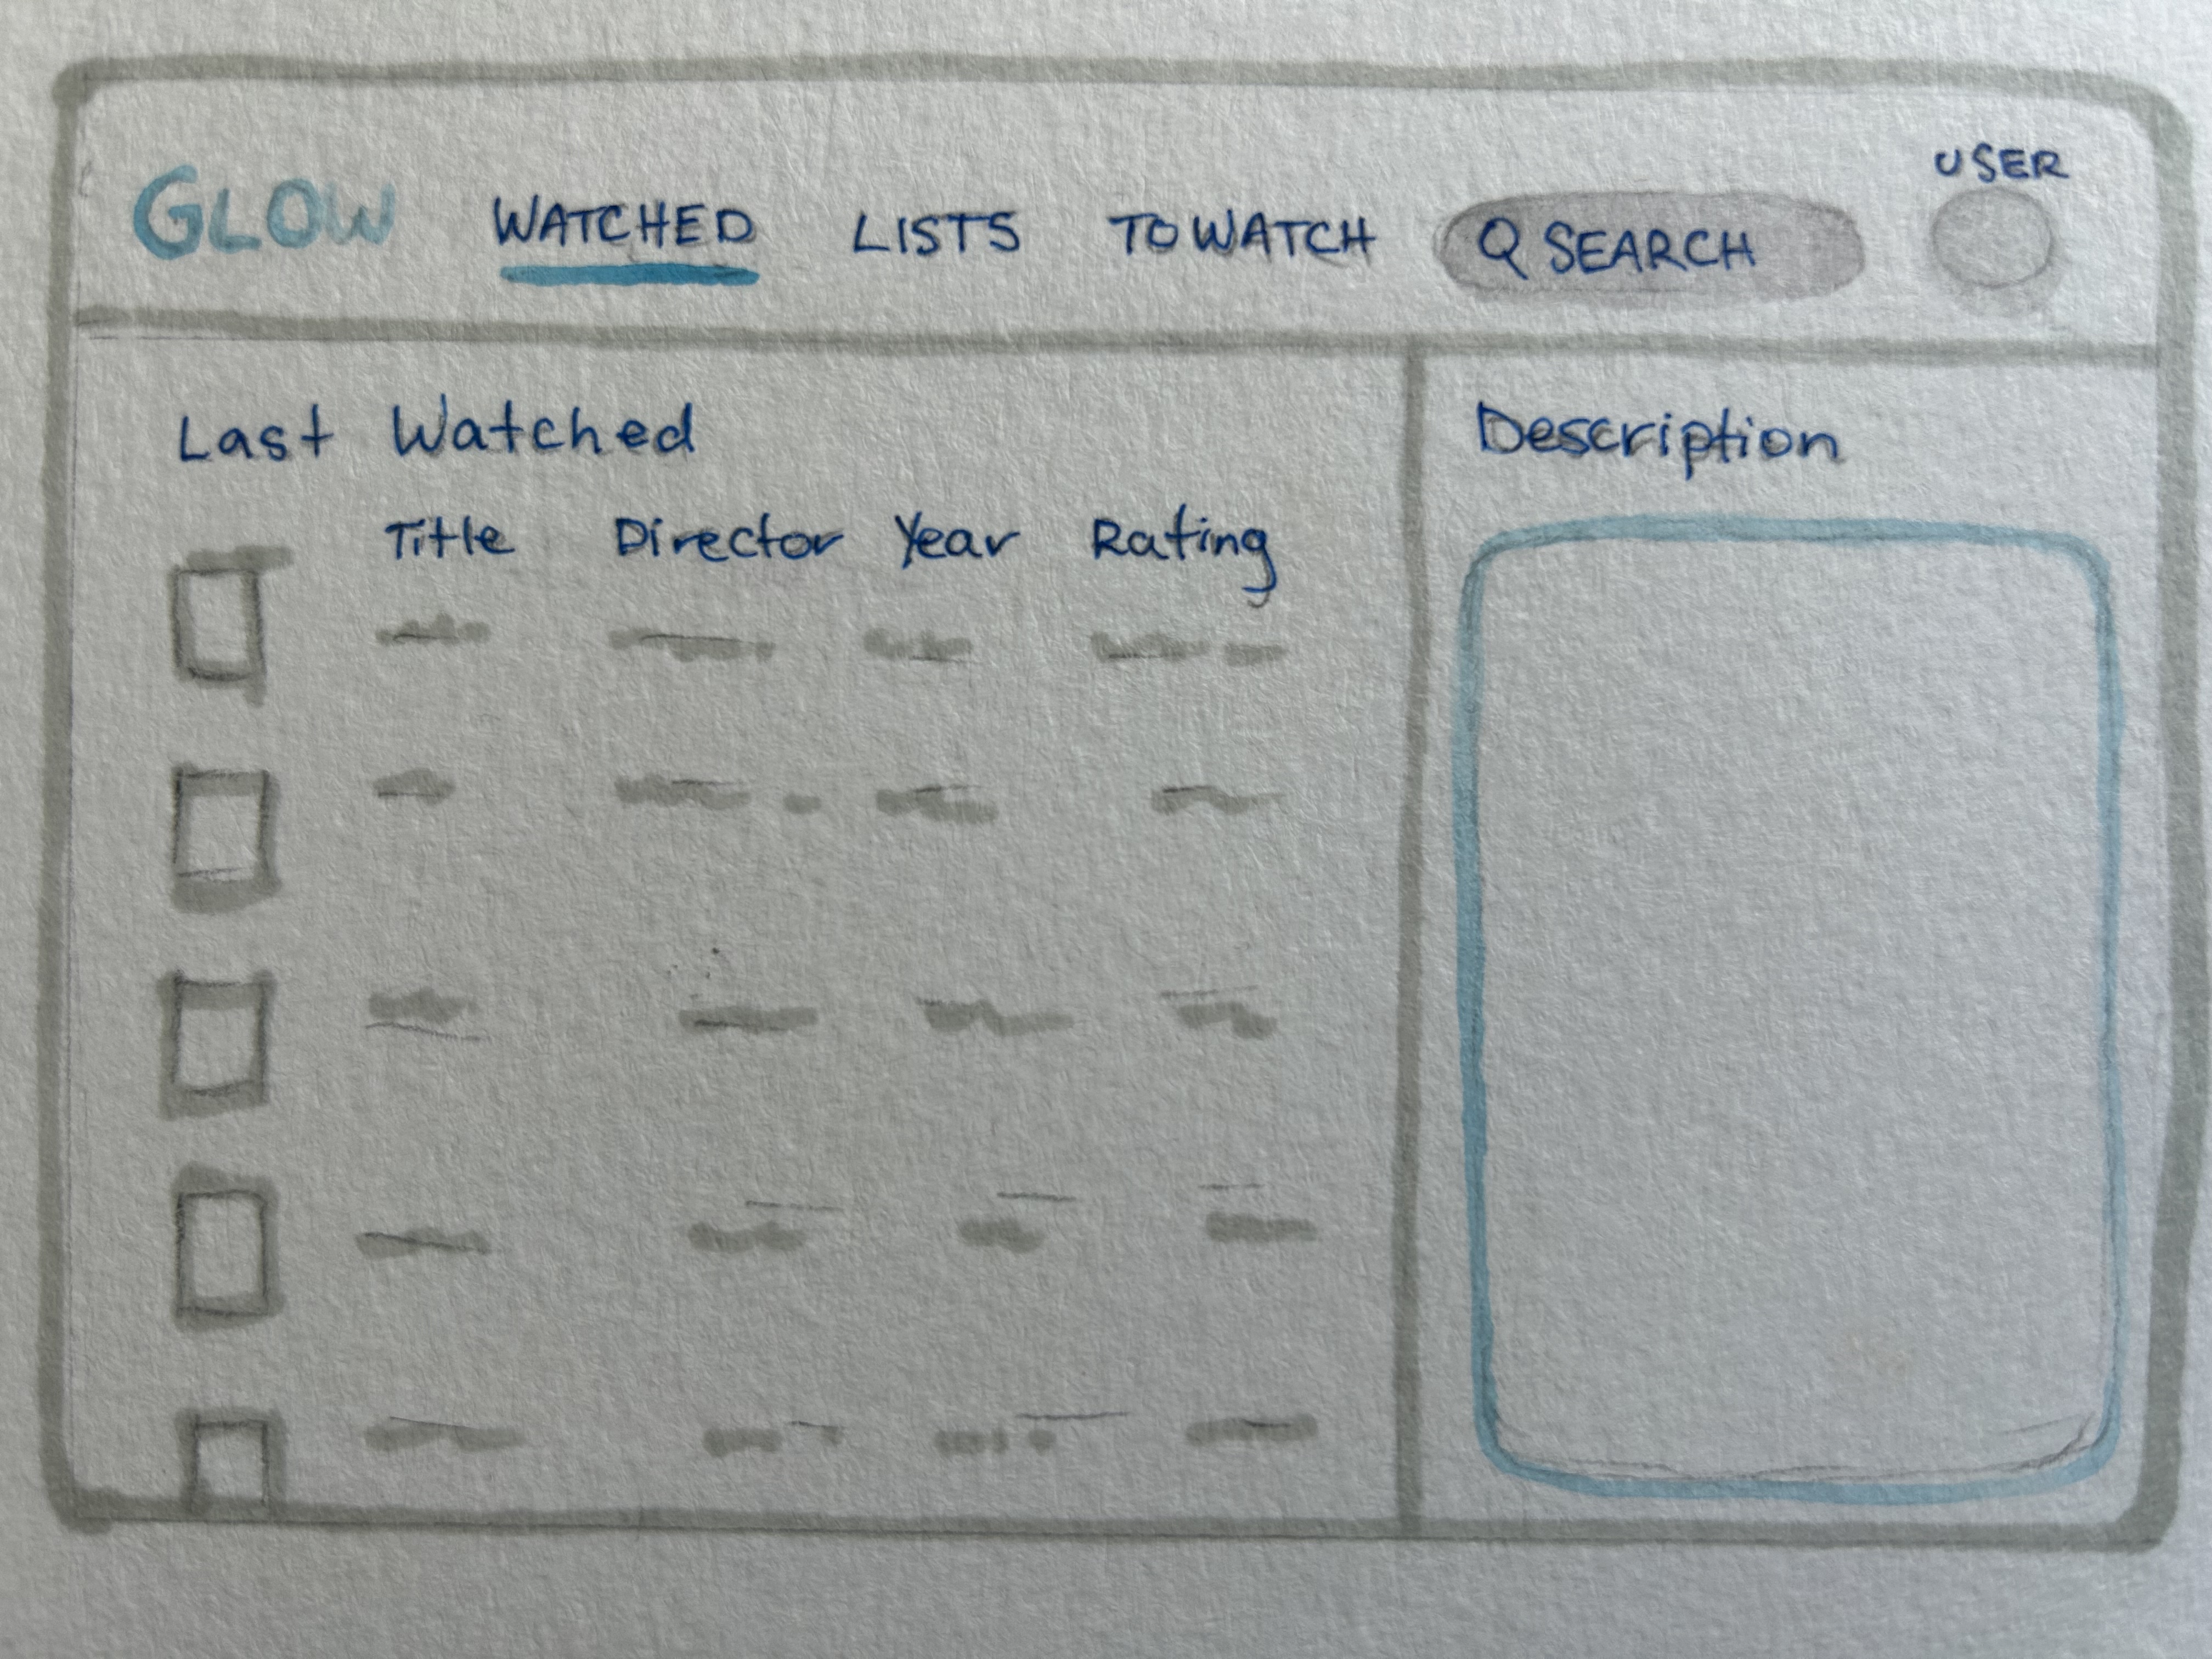 GLOW WATCHED LISTS TO WATCH SEARCH USER
Last Watched
Title Director Year Rating
Description